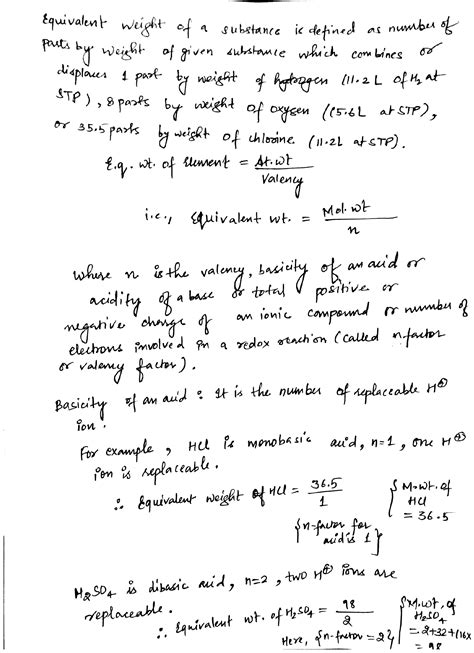 Equivalent weight of a substance is defined as number of
parts by weight of given substance which combines or
displaces 1 part by weight of hydrogen (11.2 L of H₂ at
STP), 8 parts by weight of oxygen (5.6L at STP),
or 35.5 parts by weight of chlorine (11.2L at STP).
E.q. wt. of element = At. wt / Valency
i.e., Equivalent wt. = Mol. wt / n
where n is the valency, basicity of an acid or
acidity of a base or total positive or
negative charge of an ionic compound or number of
electrons involved in a redox reaction (called n-factor
or valency factor).
Basicity of an acid : It is the number of replaceable H⊕
ion.
For example, HCl is monobasic acid, n=1, one H⊕
ion is replaceable.
∴ Equivalent weight of HCl = 36.5 / 1 {M.wt. of HCl = 36.5
{n-factor for acid is 1}
H₂SO₄ is dibasic acid, n=2, two H⊕ ions are
replaceable.
∴ Equivalent wt. of H₂SO₄ = 98 / 2 {M.wt. of H₂SO₄ = 2+32+(16x = 98
Here, {n-factor = 2}